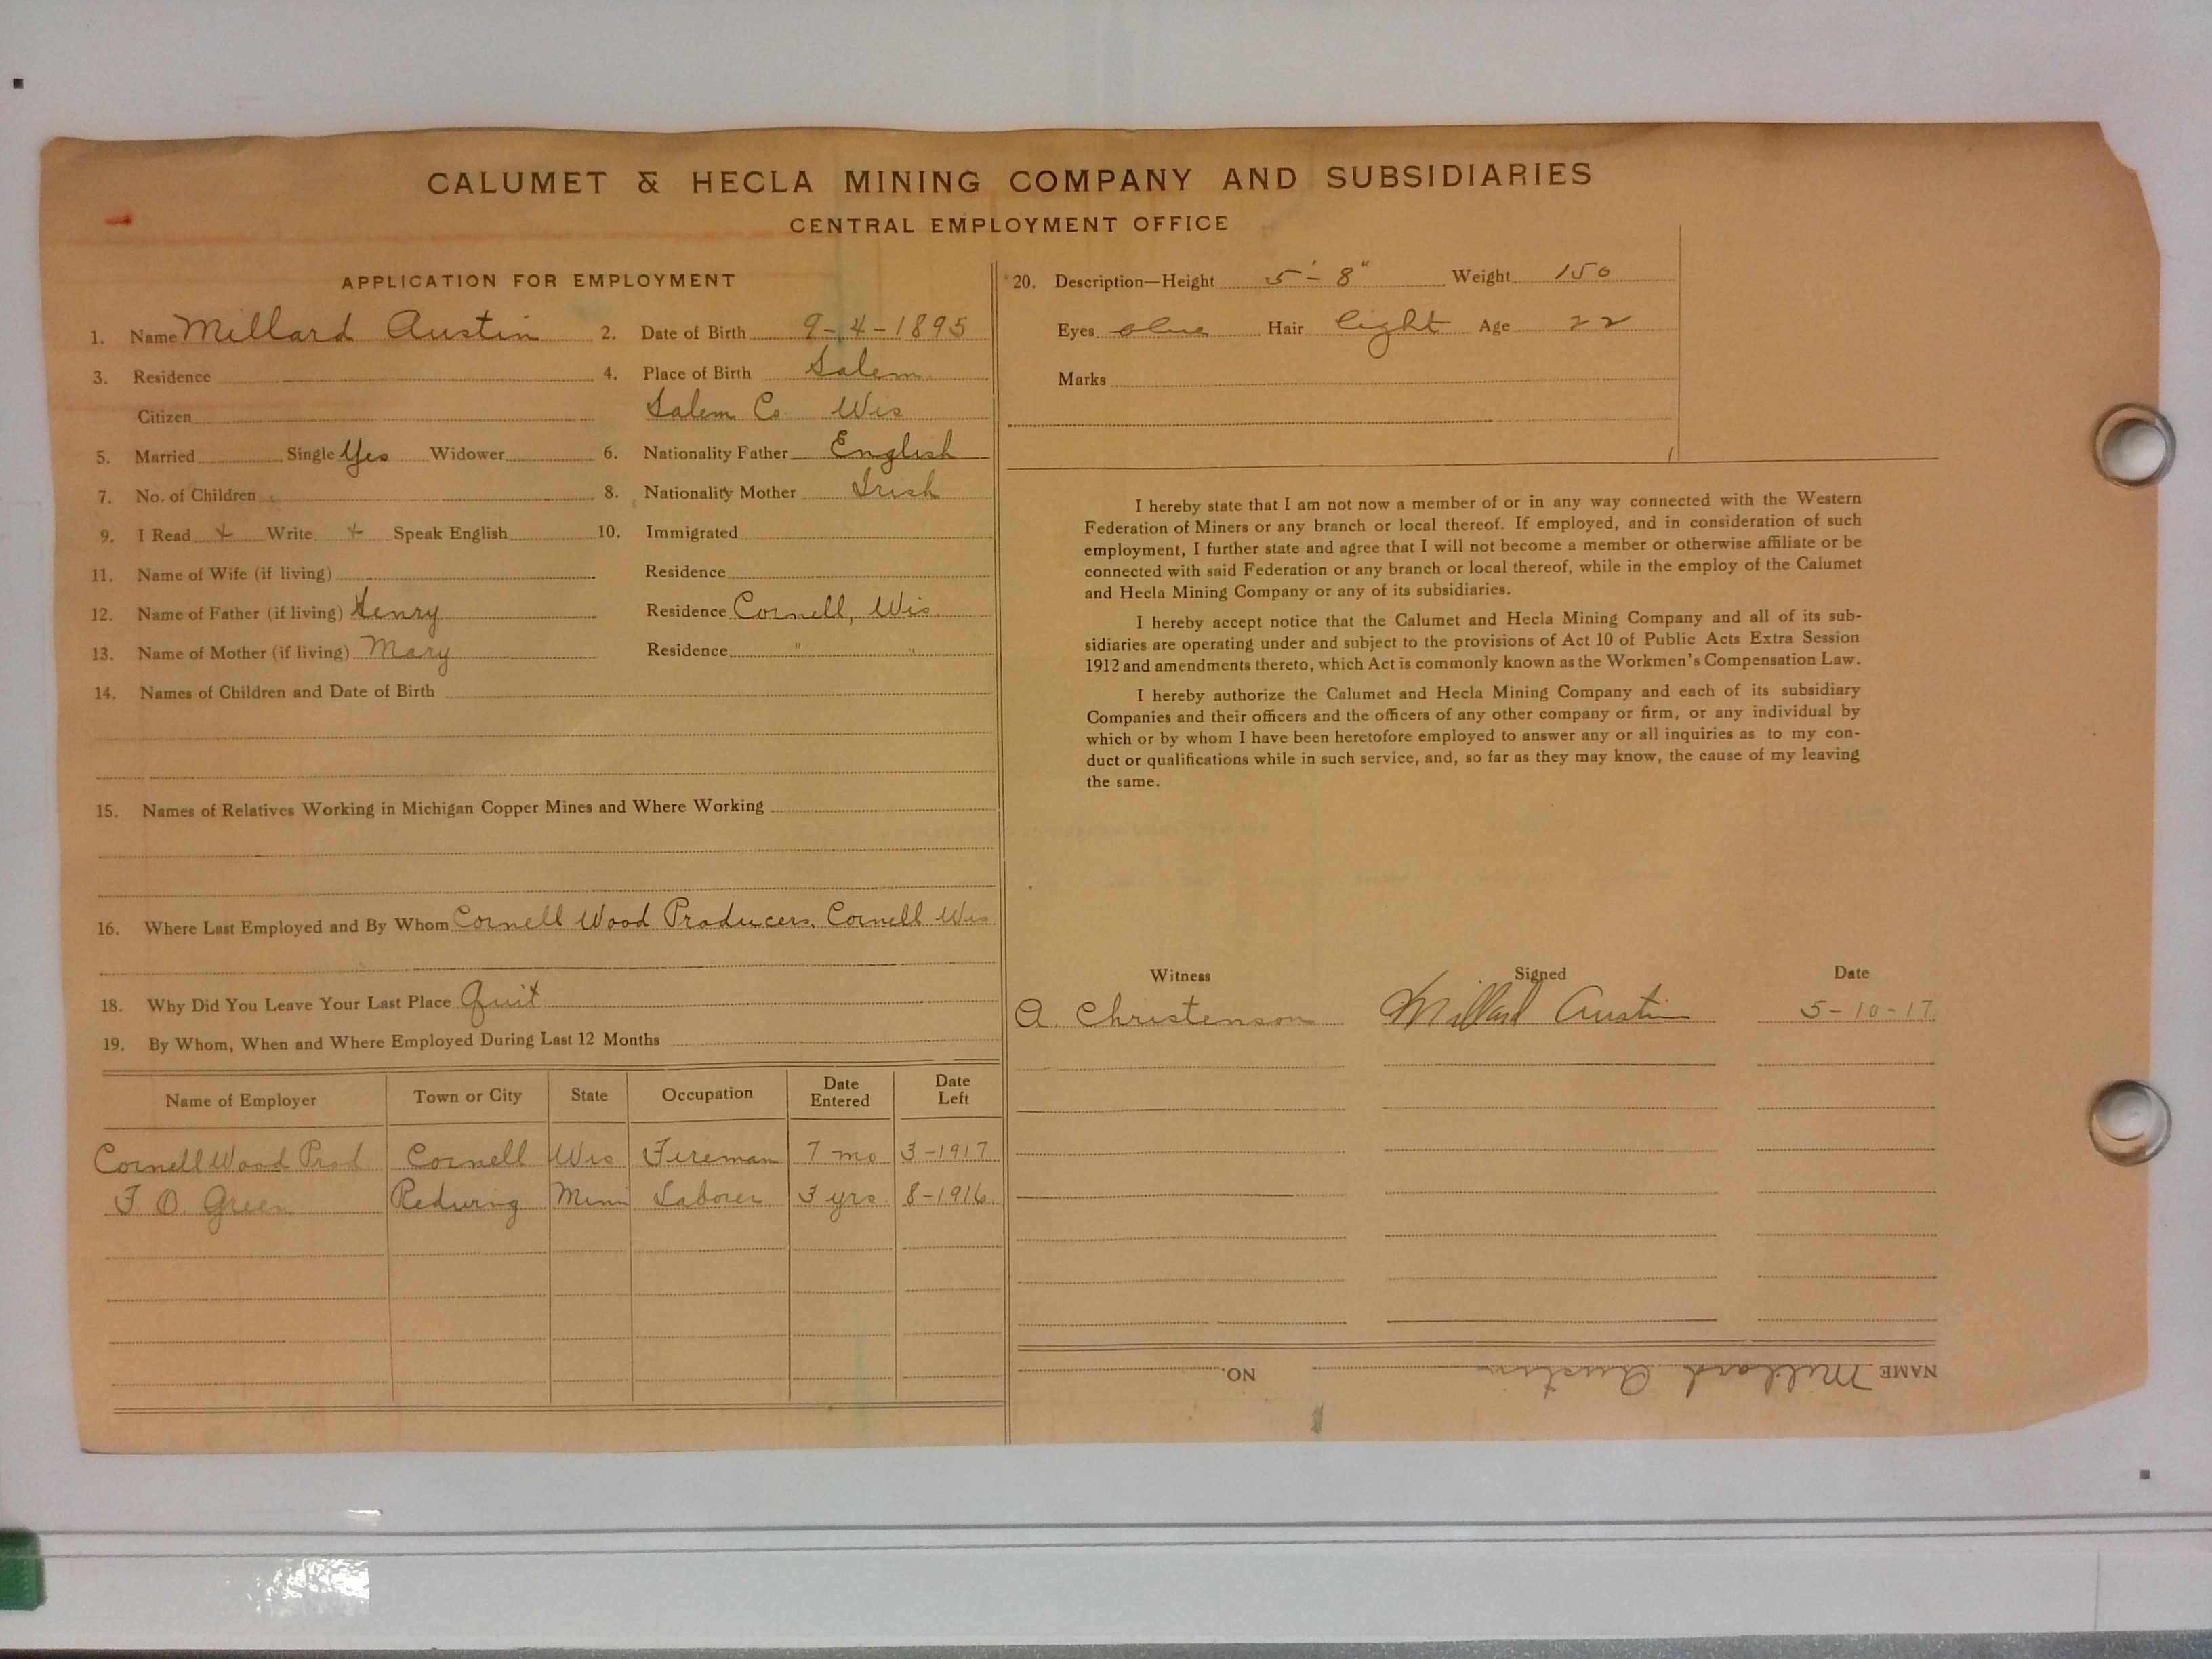 CALUMET & HECLA MINING COMPANY AND SUBSIDIARIES
CENTRAL EMPLOYMENT OFFICE
APPLICATION FOR EMPLOYMENT
1. Name Millard Austin 2. Date of Birth 9-4-1895
3. Residence 4. Place of Birth Salem
Citizen Salem Co Wis
5. Married Single Yes Widower 6. Nationality Father English
7. No. of Children 8. Nationality Mother Irish
9. I Read + Write + Speak English 10. Immigrated
11. Name of Wife (if living) Residence
12. Name of Father (if living) Henry Residence Cornell, Wis.
13. Name of Mother (if living) Mary Residence " "
14. Names of Children and Date of Birth
15. Names of Relatives Working in Michigan Copper Mines and Where Working
16. Where Last Employed and By Whom Cornell Wood Producers, Cornell Wis
18. Why Did You Leave Your Last Place Quit
19. By Whom, When and Where Employed During Last 12 Months
Name of Employer Town or City State Occupation Date Entered Date Left
Cornell Wood Prod Cornell Wis Fireman 7 mo 3-1917
F O. Green Redwing Minn Laborer 3 yrs. 8-1916
20. Description—Height 5'-8" Weight 150
Eyes blue Hair light Age 22
Marks
I hereby state that I am not now a member of or in any way connected with the Western
Federation of Miners or any branch or local thereof. If employed, and in consideration of such
employment, I further state and agree that I will not become a member or otherwise affiliate or be
connected with said Federation or any branch or local thereof, while in the employ of the Calumet
and Hecla Mining Company or any of its subsidiaries.
I hereby accept notice that the Calumet and Hecla Mining Company and all of its sub-
sidiaries are operating under and subject to the provisions of Act 10 of Public Acts Extra Session
1912 and amendments thereto, which Act is commonly known as the Workmen's Compensation Law.
I hereby authorize the Calumet and Hecla Mining Company and each of its subsidiary
Companies and their officers and the officers of any other company or firm, or any individual by
which or by whom I have been heretofore employed to answer any or all inquiries as to my con-
duct or qualifications while in such service, and, so far as they may know, the cause of my leaving
the same.
Witness Signed Date
A. Christenson Millard Austin 5-10-17
NAME Millard Austin NO.